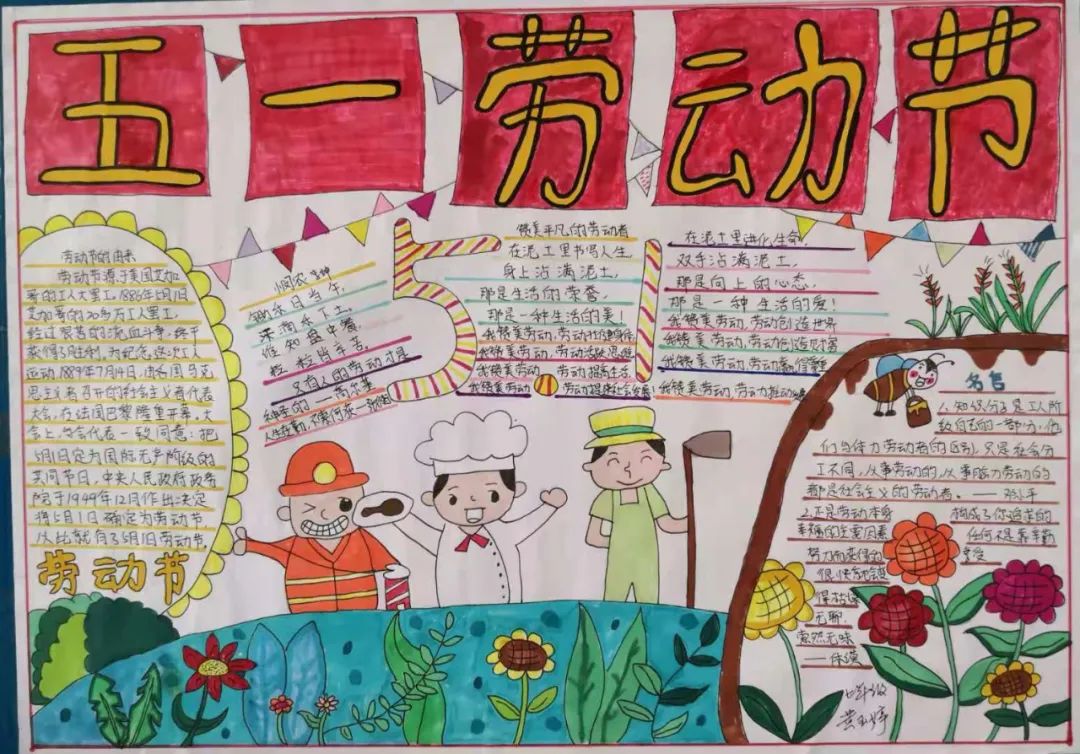 五一劳动节
劳动节的由来
劳动节源于美国芝加
哥的工人大罢工。1886年5月1日
芝加哥的20多万工人罢工,
经过艰苦的流血斗争,终于
获得了胜利。为纪念这次工人
运动1889年7月14日,由各国马克
思主义者召开的社会主义者代表
大会,在法国巴黎隆重开幕。大
会上,与会代表一致同意:把
5月1日定为国际无产阶级的
共同节日,中央人民政府政务
院于1949年12月作出决定
将5月1日确定为劳动节
从此就有了5月1日劳动节。
劳动节
悯农
锄禾日当午,
汗滴禾下土。
谁知盘中餐,
粒粒皆辛苦。
只有人的劳动才是
神圣的——高尔基
5.1
赞美平凡的劳动者
在泥土里书写人生,
身上沾满泥土,
那是生活的荣誉,
那是一种生活的美!
我赞美劳动,劳动
我赞美劳动,劳动活跃思维
我赞美劳动,劳动提高生活,
我赞美劳动,劳动提进社会发展!
在泥土里进化生命,
双手沾满泥土,
那是向上的心态,
那是一种生活的爱!
我赞美劳动,劳动创造世界
我赞美劳动,劳动创造财富
我赞美劳动,劳动赢得尊重
我赞美劳动,劳动推动
名言
1.知识分子是工人阶
级自己的一部分,他
们与体力劳动者的区别,只是社会分
工不同,从事劳动的,从事脑力劳动的
都是社会主义的劳动者。——邓小平
2.正是劳动本身构成了你追求的
幸福的主要因素任何不是靠辛勤
努力而获得的享受
很快就会变
得枯燥
无聊
索然无味
——休谟
四年级